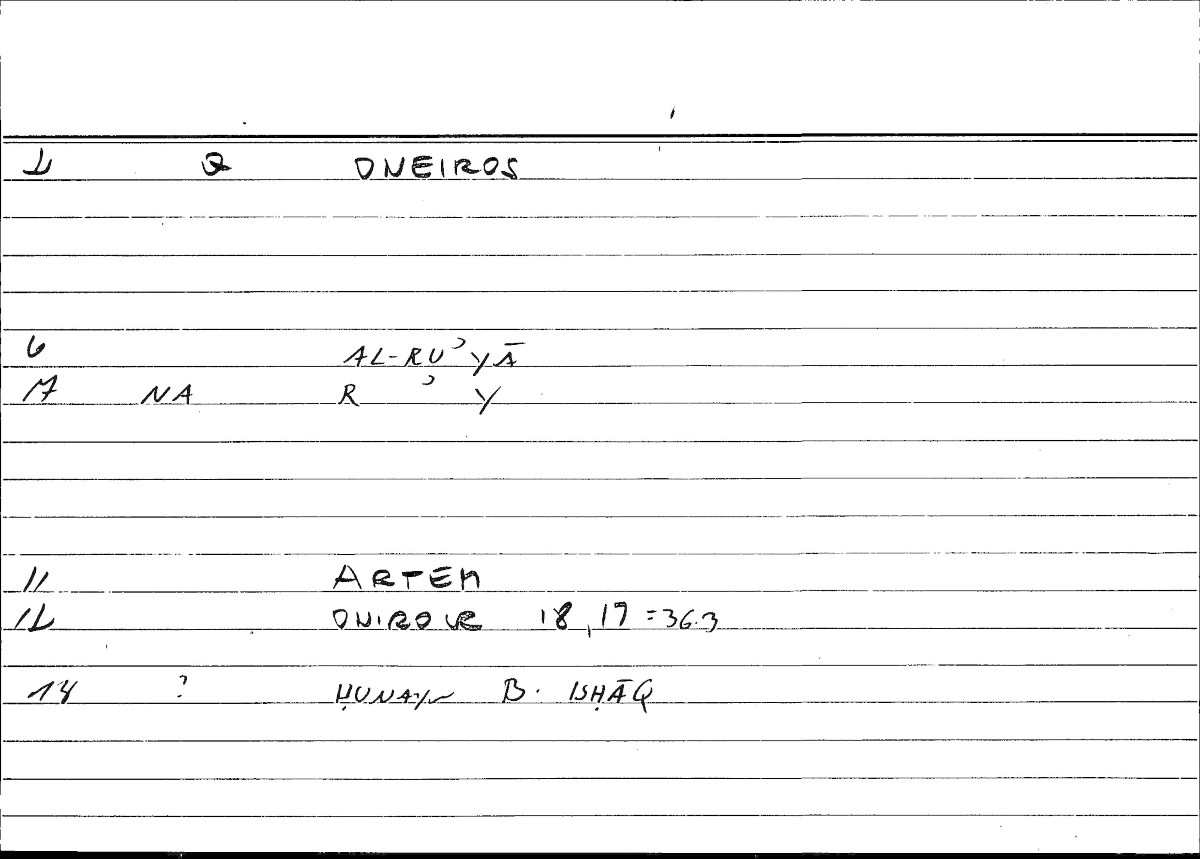 1 2 ONEIROS
6 AL-RUʾYĀ
7 NA R ʾ Y
11 ARTEM
12 ONIROCR 18,17 = 36.3
14 ? ḤUNAYN B. ISḤĀQ